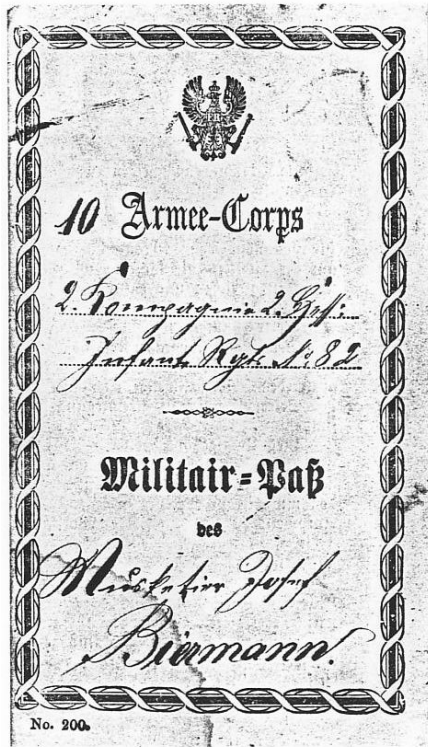 10 Armee-Corps
2. Kompagnie 2. Hess:
Infant. Rgts. No. 82
Militair-Paß
des
Musketier Josef
Biermann.
No. 200.